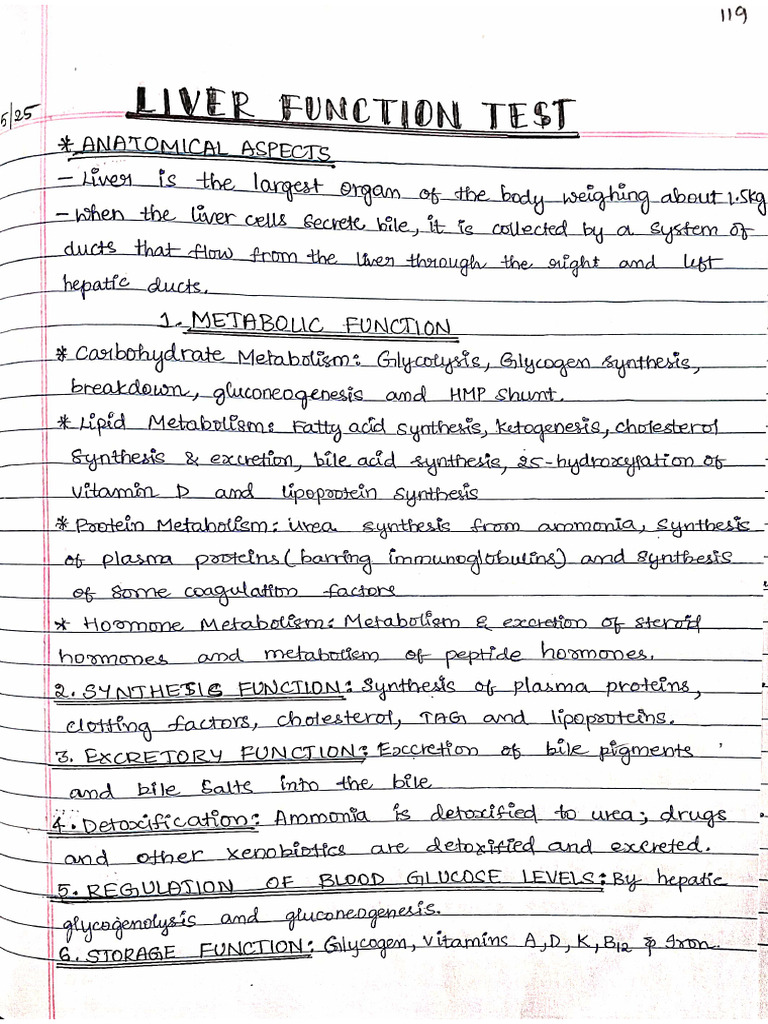 119
5/25
LIVER FUNCTION TEST
* ANATOMICAL ASPECTS
- Liver is the largest organ of the body weighing about 1.5kg
- When the liver cells secrete bile, it is collected by a system of
ducts that flow from the liver through the right and left
hepatic ducts.
1. METABOLIC FUNCTION
* Carbohydrate Metabolism: Glycolysis, Glycogen synthesis,
breakdown, gluconeogenesis and HMP shunt.
* Lipid Metabolism: Fatty acid synthesis, ketogenesis, cholesterol
synthesis & excretion, bile acid synthesis, 25-hydroxylation of
vitamin D and lipoprotein synthesis
* Protein Metabolism: urea synthesis from ammonia, synthesis
of plasma proteins (barring immunoglobulins) and synthesis
of some coagulation factors
* Hormone Metabolism: Metabolism & excretion of steroid
hormones and metabolism of peptide hormones.
2. SYNTHESIS FUNCTION: Synthesis of plasma proteins,
clotting factors, cholesterol, TAG and lipoproteins.
3. EXCRETORY FUNCTION: Exccretion of bile pigments
and bile salts into the bile
4. Detoxification: Ammonia is detoxified to urea; drugs
and other xenobiotics are detoxified and excreted.
5. REGULATION OF BLOOD GLUCOSE LEVELS: By hepatic
glycogenolysis and gluconeogenesis.
6. STORAGE FUNCTION: Glycogen, Vitamins A, D, K, B12 & Iron.